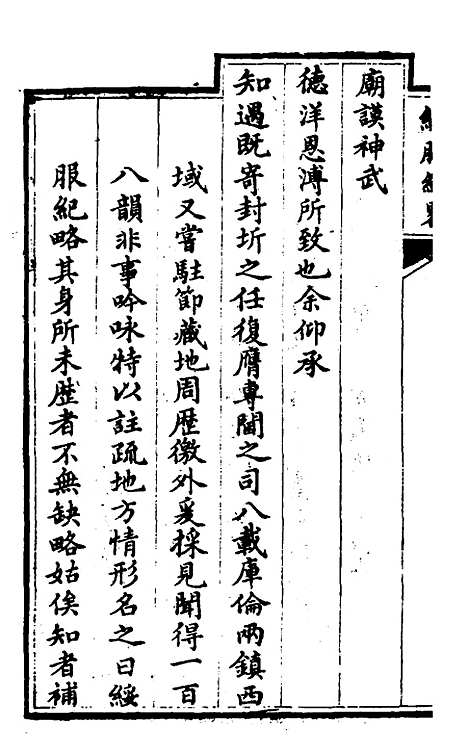 廟謨神武
德洋恩溥所致也余仰承
知遇既寄封圻之任復膺專閫之司八載庫倫兩鎮西
域又嘗駐節藏地周歷徼外爰採見聞得一百
八韻非事吟咏特以註疏地方情形名之曰綏
服紀略其身所未歷者不無缺略姑俟知者補